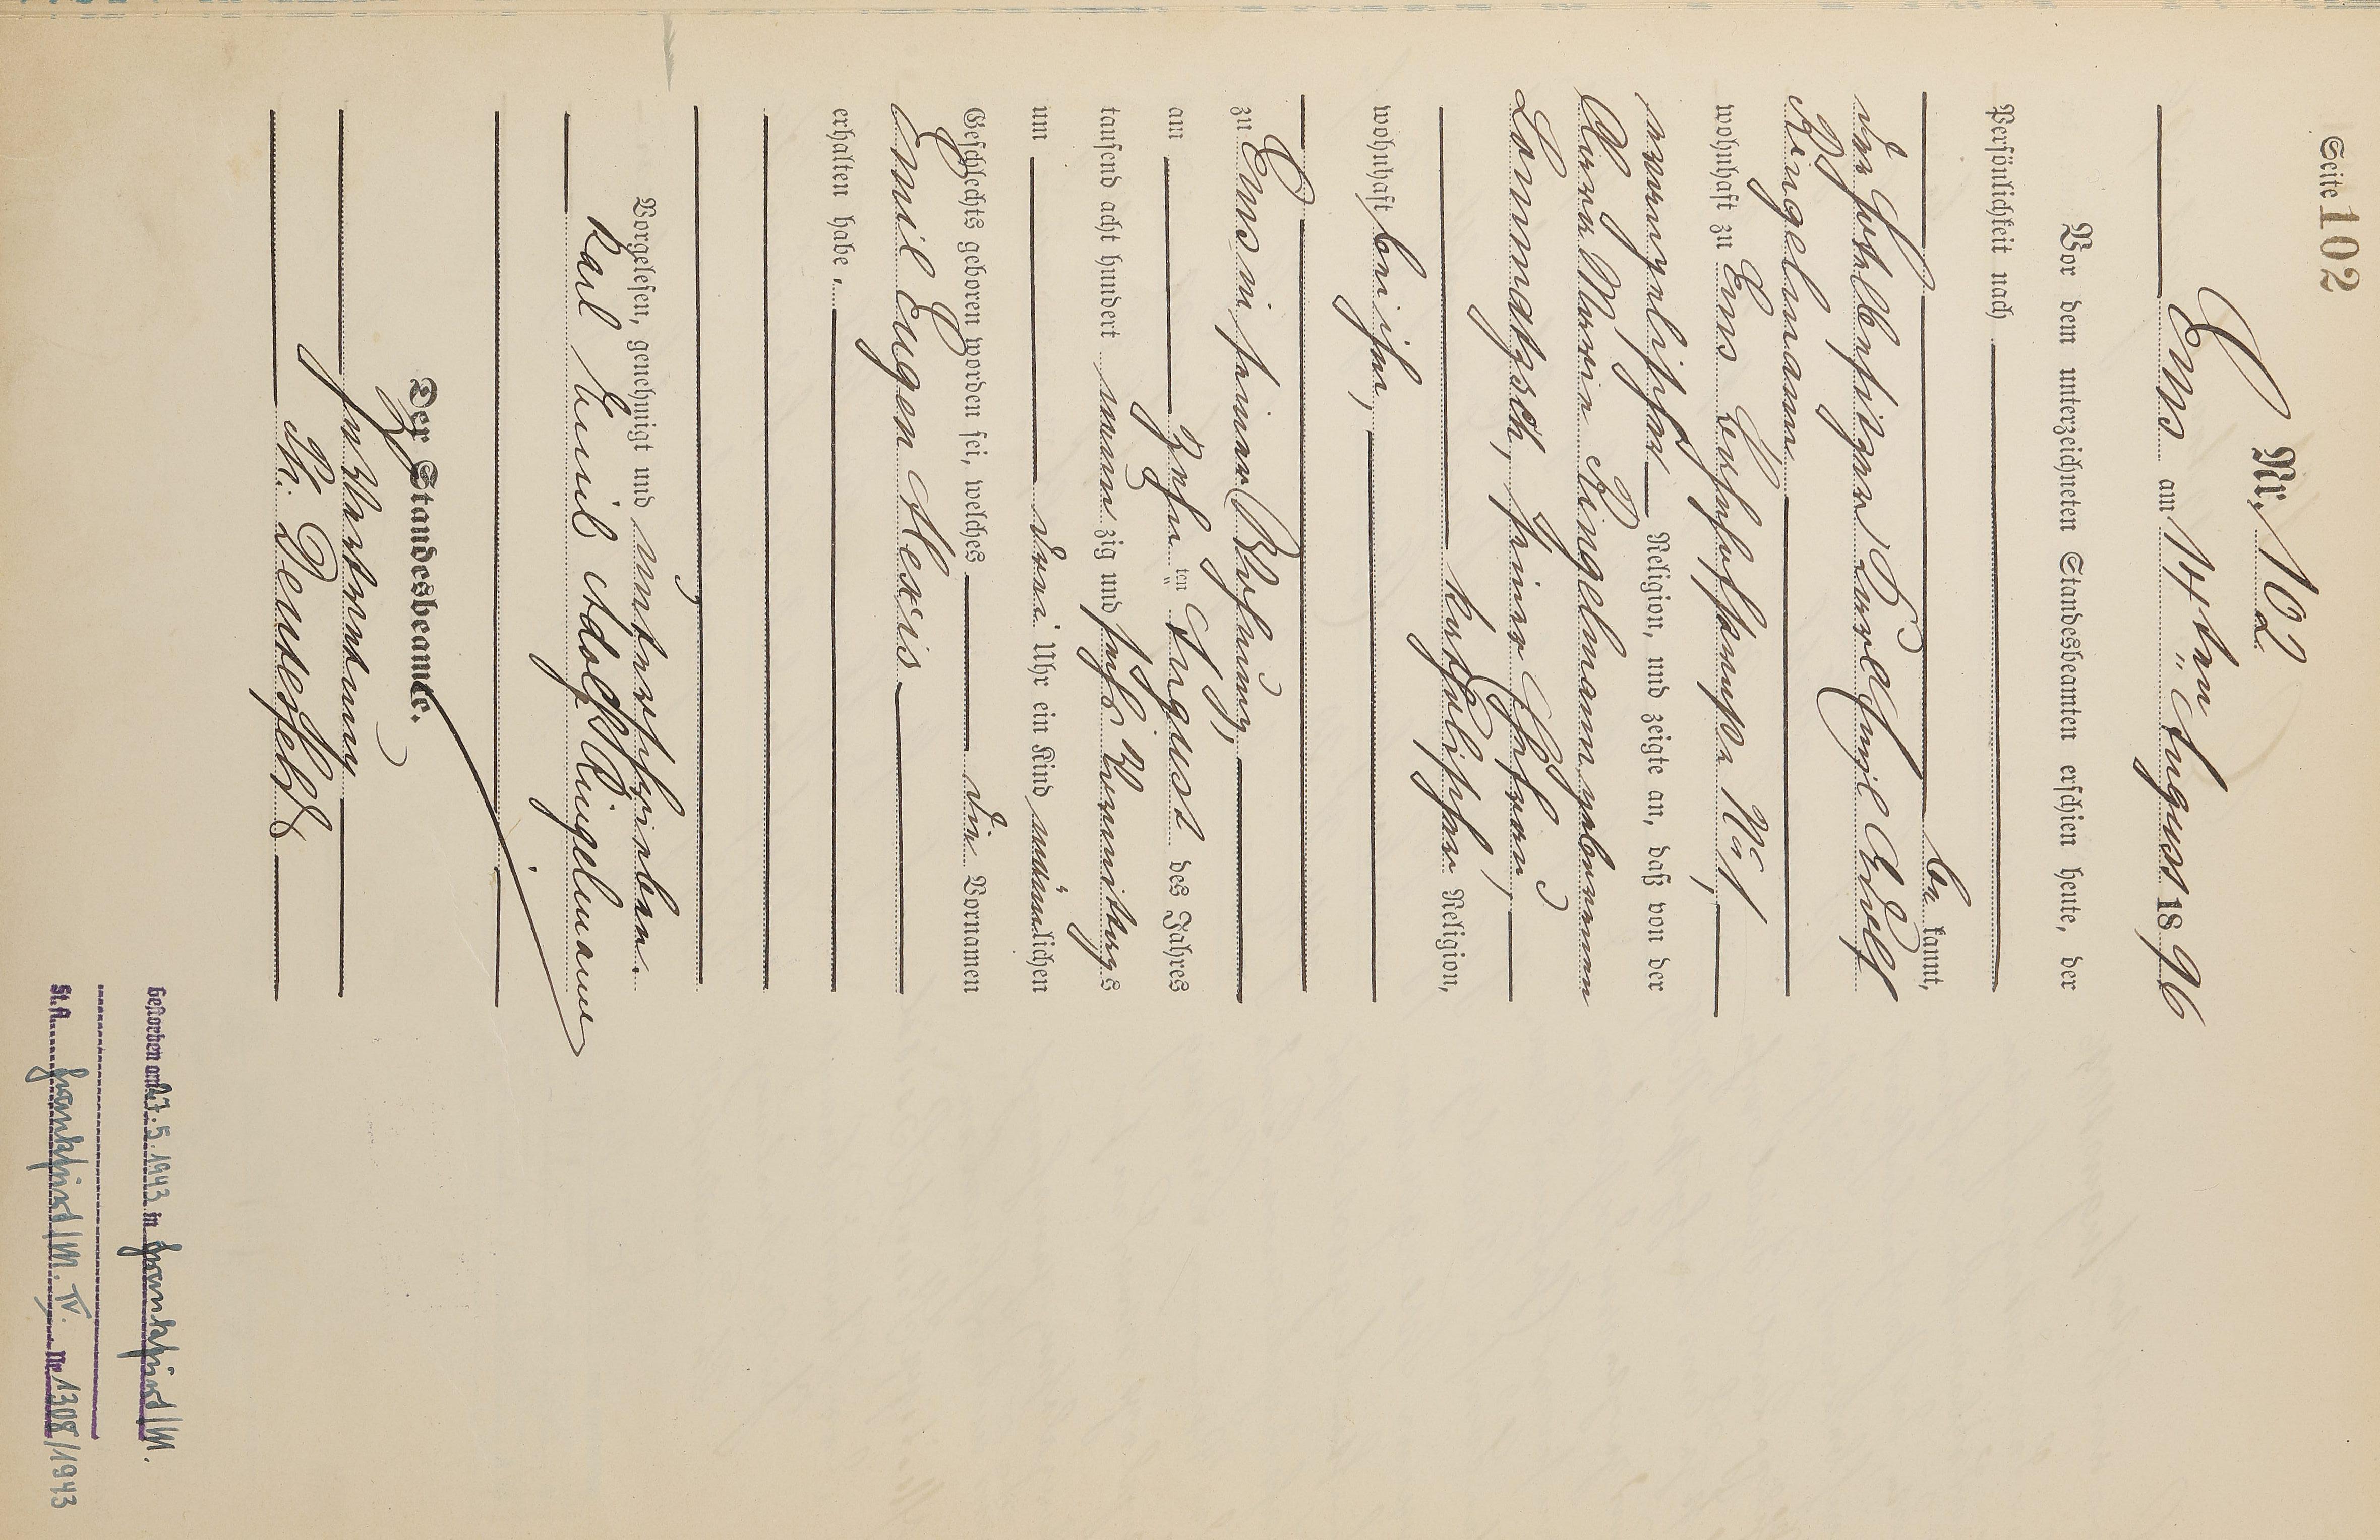 Seite 102
Nr. 102
Ems am 14ten August 1896
Vor dem unterzeichneten Standesbeamten erschien heute, der
Persönlichkeit nach
be kannt,
der Hotelbesitzer Karl Emil Adolf
Ringelmann
wohnhaft zu Ems
evangelischer Religion, und zeigte an, daß von der
Anna Maria Ringelmann geborenen
Lommatzsch, seiner Ehefrau,
katholischer Religion,
wohnhaft bei ihm,
zu Ems in seiner Wohnung,
am zehn ten August des Jahres
tausend acht hundert neun zig und sechs Vormittags
um drei Uhr ein Kind männlichen
Geschlechts geboren worden sei, welches die Vornamen
Emil Eugen Alexis
erhalten habe.
Vorgelesen, genehmigt und unterschrieben.
Karl Emil Adolf Ringelmann
Der Standesbeamte.
In Vertretung
Gestorben am 27.5.1943 in Frankfurt/M.
St.A. Frankfurt/M. IV. Nr. 1308/1943